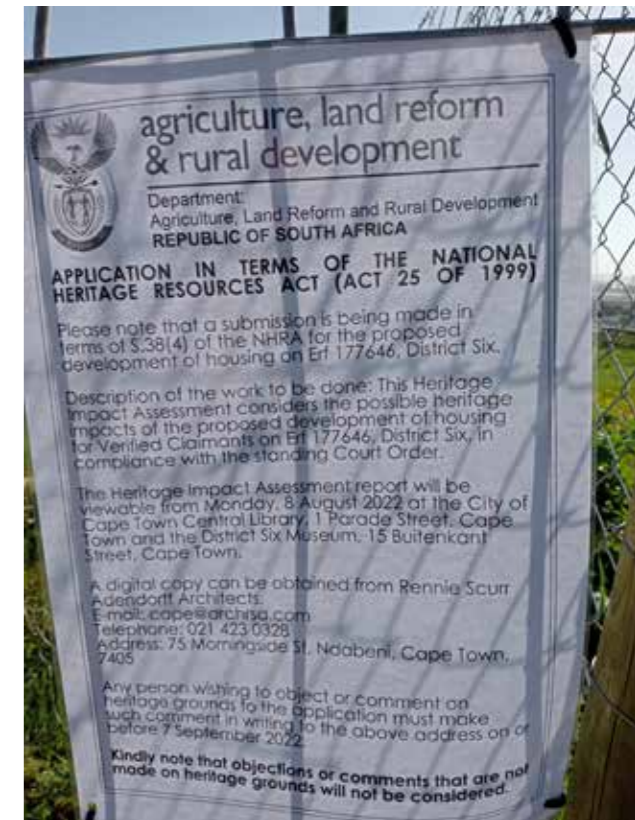 agriculture, land reform
& rural development
Department:
Agriculture, Land Reform and Rural Development
REPUBLIC OF SOUTH AFRICA
APPLICATION IN TERMS OF THE NATIONAL
HERITAGE RESOURCES ACT (ACT 25 OF 1999)
Please note that a submission is being made in
terms of S.38(4) of the NHRA for the proposed
development of housing on Erf 177646, District Six.
Description of the work to be done: This Heritage
Impact Assessment considers the possible heritage
impacts of the proposed development of housing
for Verified Claimants on Erf 177646, District Six, in
compliance with the standing Court Order.
The Heritage Impact Assessment report will be
viewable from Monday, 8 August 2022 at the City of
Cape Town Central Library, 1 Parade Street, Cape
Town and the District Six Museum, 15 Buitenkant
Street, Cape Town.
A digital copy can be obtained from Rennie Scurr
Adendorff Architects.
E-mail: cape@archrsa.com
Telephone: 021 423 0328
Address: 75 Morningside St, Ndabeni, Cape Town,
7405
Any person wishing to object or comment on
heritage grounds to the application must make
such comment in writing to the above address on or
before 7 September 2022.
Kindly note that objections or comments that are not
made on heritage grounds will not be considered.